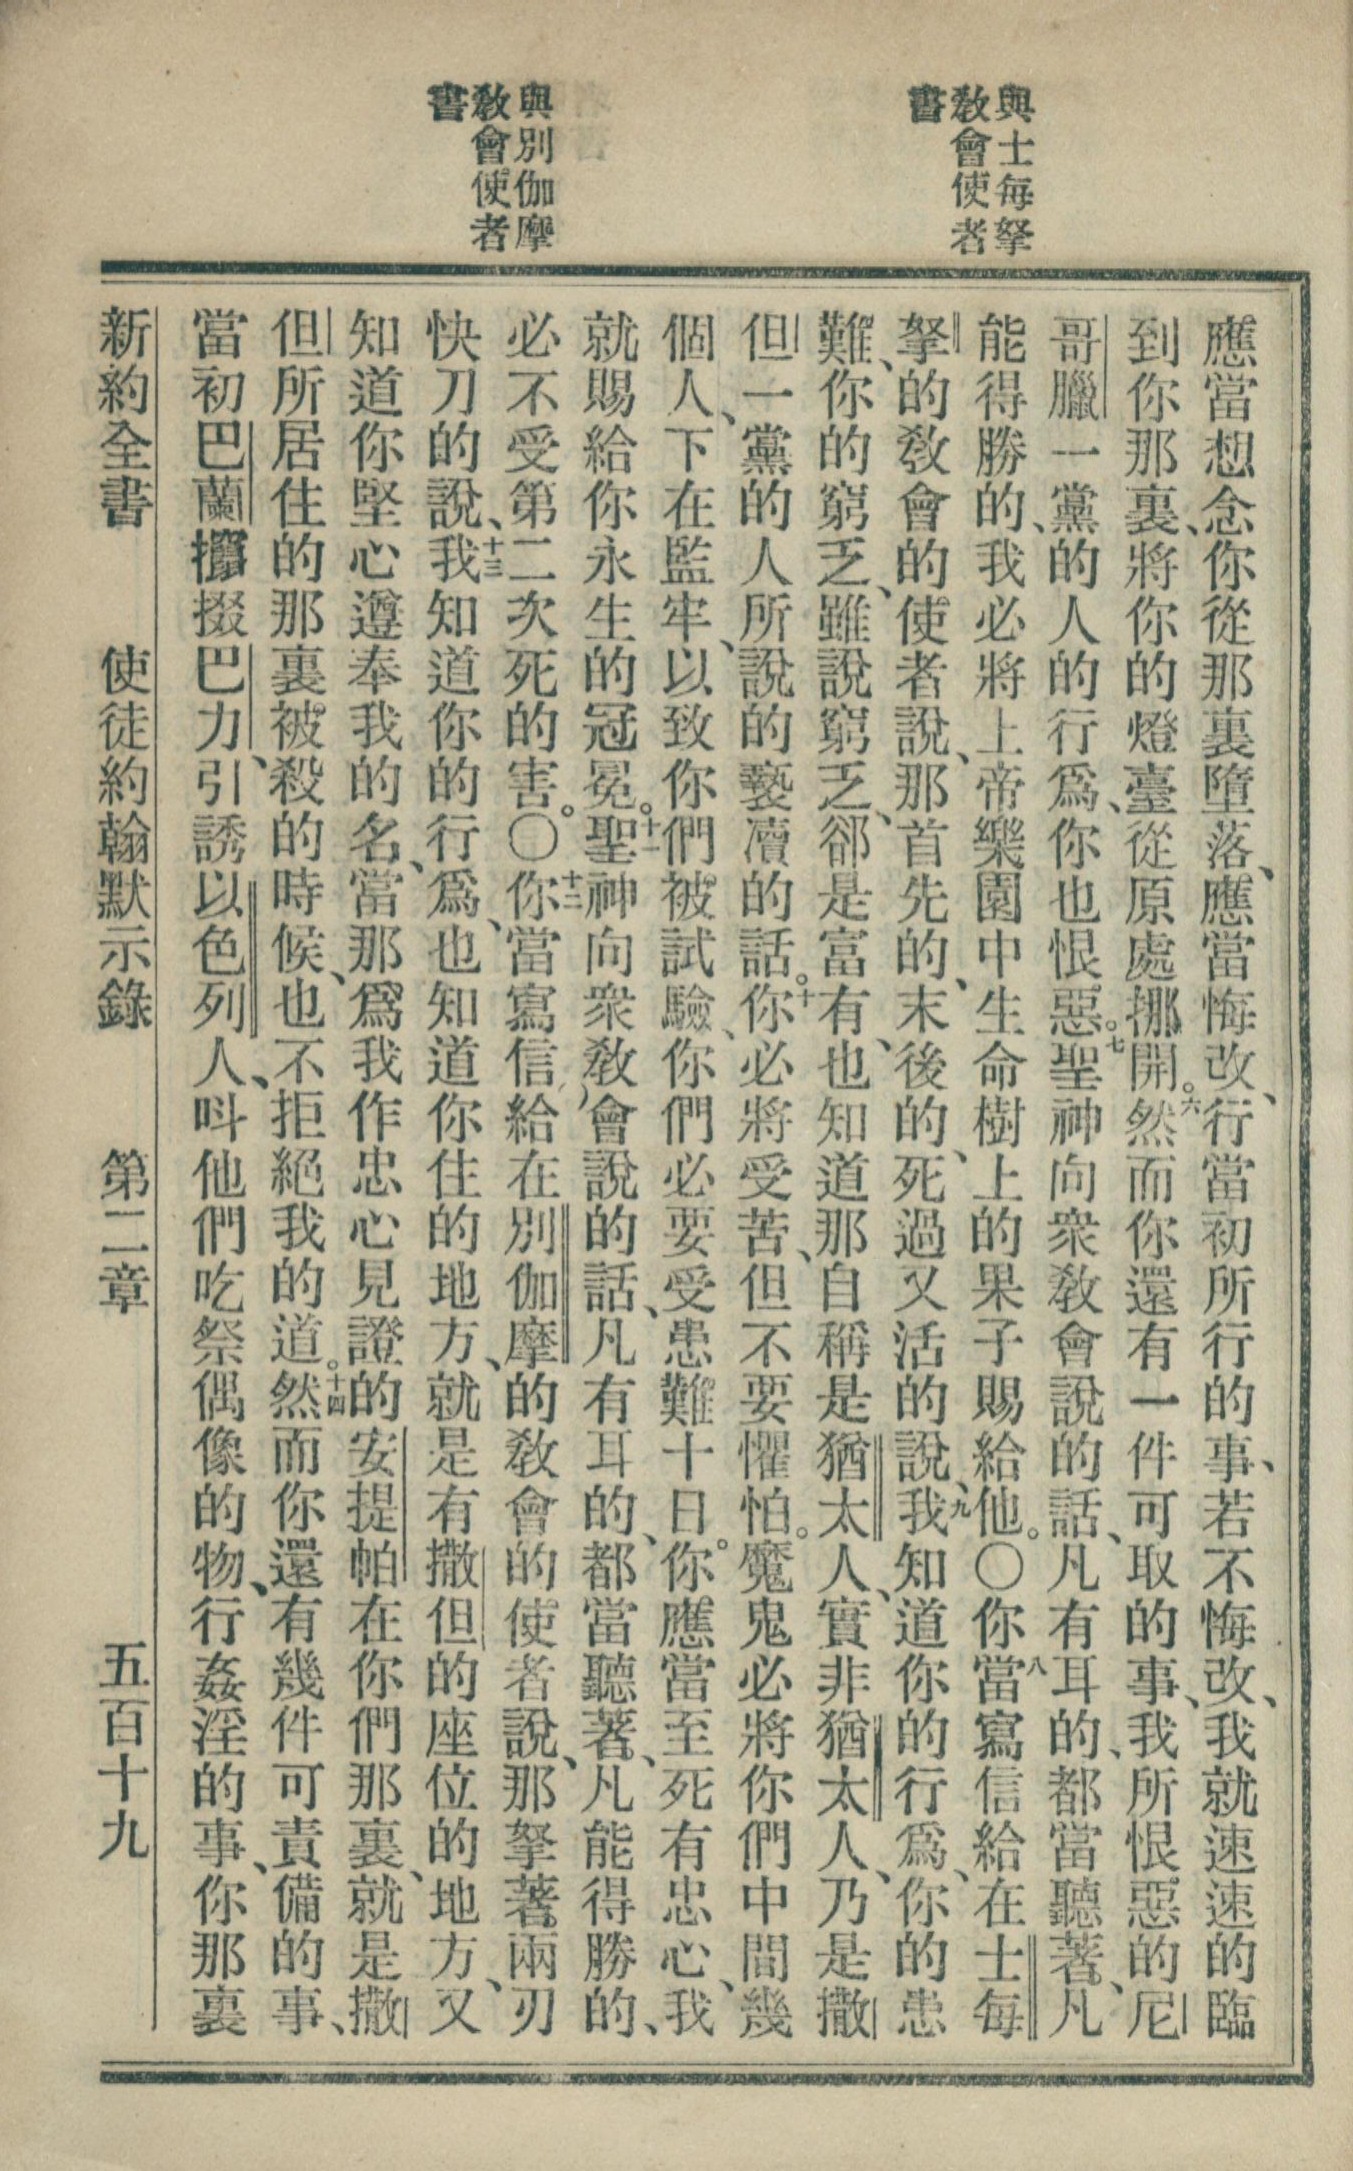 與士每拏
敎會使者
書
與別伽摩
敎會使者
書
應當想念你從那裏墮落、應當悔改、行當初所行的事、若不悔改、我就速速的臨
到你那裏、將你的燈臺從原處挪開。六然而你還有一件可取的事、我所恨惡的尼
哥臘一黨的人的行爲、你也恨惡。七聖神向衆敎會說的話、凡有耳的、都當聽著、凡
能得勝的、我必將上帝樂園中生命樹上的果子賜給他。〇八你當寫信給在士每
拏的敎會的使者說、那首先的、末後的、死過又活的說、九我知道你的行爲、你的患
難、你的窮乏、雖說窮乏、卻是富有、也知道那自稱是猶太人、實非猶太人、乃是撒
但一黨的人所說的褻瀆的話。十你必將受苦、但不要懼怕。魔鬼必將你們中間幾
個人、下在監牢、以致你們被試驗、你們必要受患難十日。你應當至死有忠心、我
就賜給你永生的冠冕。十一聖神向衆敎會說的話、凡有耳的、都當聽著、凡能得勝的、
必不受第二次死的害。〇十二你當寫信給在別伽摩的敎會的使者說、那拏著兩刃
快刀的說、十三我知道你的行爲、也知道你住的地方、就是有撒但的座位的地方、又
知道你堅心遵奉我的名、當那爲我作忠心見證的安提帕在你們那裏、就是撒
但所居住的那裏、被殺的時候、也不拒絕我的道。十四然而你還有幾件可責備的事、
當初巴蘭攛掇巴力、引誘以色列人、呌他們吃祭偶像的物、行姦淫的事、你那裏
新約全書　使徒約翰默示錄　第二章　五百十九